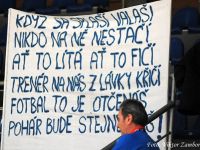 KDYŽ SA SPASÍ VALAŠI
NIKDO NA NĚ NESTAČÍ
AŤ TO LÍTÁ AŤ TO FIČÍ
TRENÉR NA NÁS Z LÁVKY KŘIČÍ
FOTBAL TO JE OTČENÁŠ
POHÁR BUDE STEJNĚ
Foto: Viktor Zambor